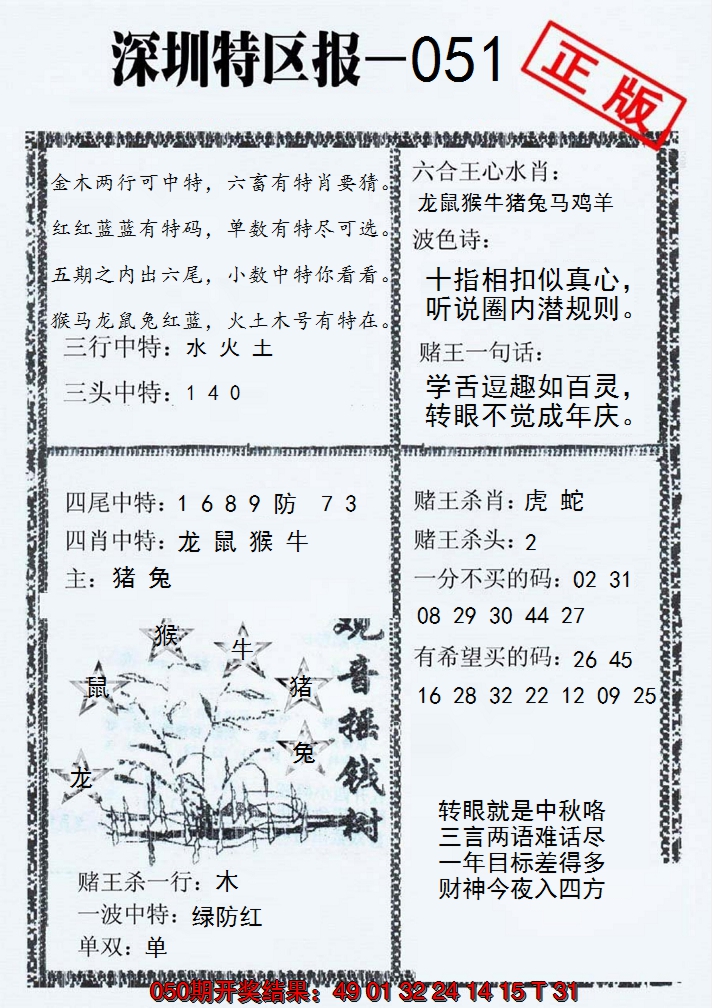 深圳特区报—051
正版
金木两行可中特，六畜有特肖要猜。
红红蓝蓝有特码，单数有特尽可选。
五期之内出六尾，小数中特你看看。
猴马龙鼠兔红蓝，火土木号有特在。
三行中特：水 火 土
三头中特：1 4 0
六合王心水肖：
龙鼠猴牛猪兔马鸡羊
波色诗：
十指相扣似真心，
听说圈内潜规则。
赌王一句话：
学舌逗趣如百灵，
转眼不觉成年庆。
四尾中特：1 6 8 9 防 7 3
四肖中特：龙 鼠 猴 牛
主：猪 兔
猴
牛
鼠
猪
兔
龙
观音摇钱树
赌王杀一行：木
一波中特：绿防红
单双：单
赌王杀肖：虎 蛇
赌王杀头：2
一分不买的码：02 31
08 29 30 44 27
有希望买的码：26 45
16 28 32 22 12 09 25
转眼就是中秋咯
三言两语难话尽
一年目标差得多
财神今夜入四方
050期开奖结果：49 01 32 24 14 15 T 31